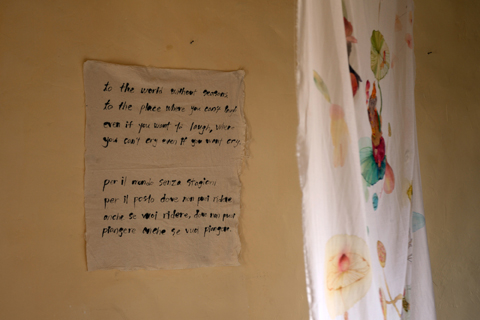 to the world without seasons
to the place where you can't but
even if you want to laugh, where
you can't cry even if you want cry.
per il mondo senza stagioni
per il posto dove non puoi ridere,
anche se vuoi ridere, dove non puoi
piangere anche se vuoi piangere.